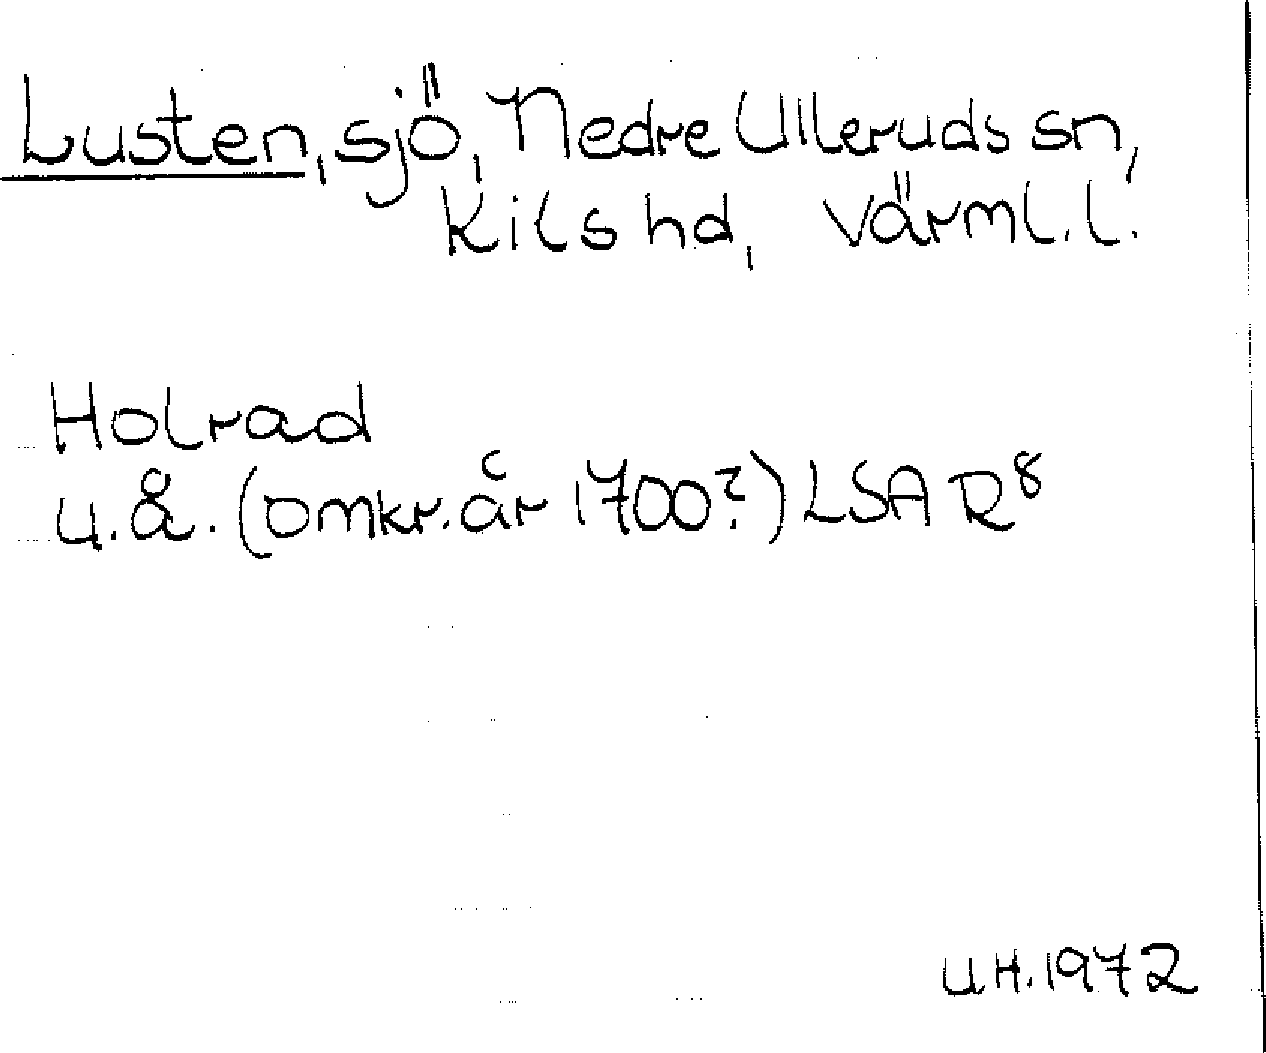 Lusten, sjö, Nedre Ulleruds sn,
Kils hd, Värml. l.
Holrad
u.å. (omkr. år 1700?) LSA R8
UH. 1972